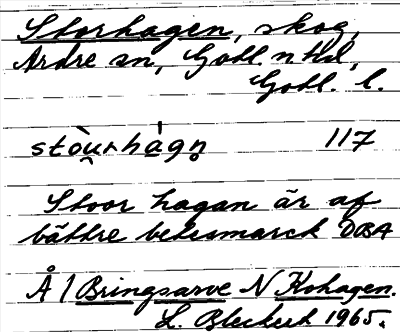 Storhagen, skog,
Ardre sn, Gotl. n Hd,
Gotl. l.
stòu̯rhàgn̥ 117
Stoor hagan är af
bättre betesmarck DBA
Å / Bringsarve N Kohagen.
L. Bleckert 1965.